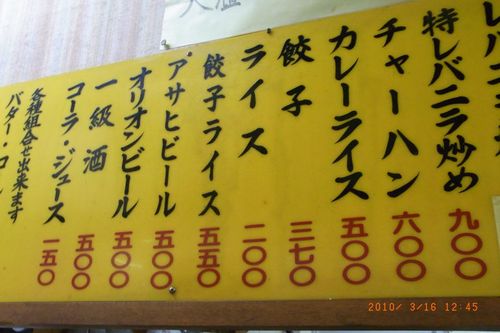 特レバニラ炒め 九〇〇
チャーハン 六〇〇
カレーライス 五〇〇
餃子 三七〇
ライス 二〇〇
餃子ライス 五五〇
アサヒビール 五〇〇
オリオンビール 五〇〇
一級酒 五〇〇
コーラ・ジュース 一五〇
各種組合せ出来ます
バター・コー
2010/ 3/16 12:45